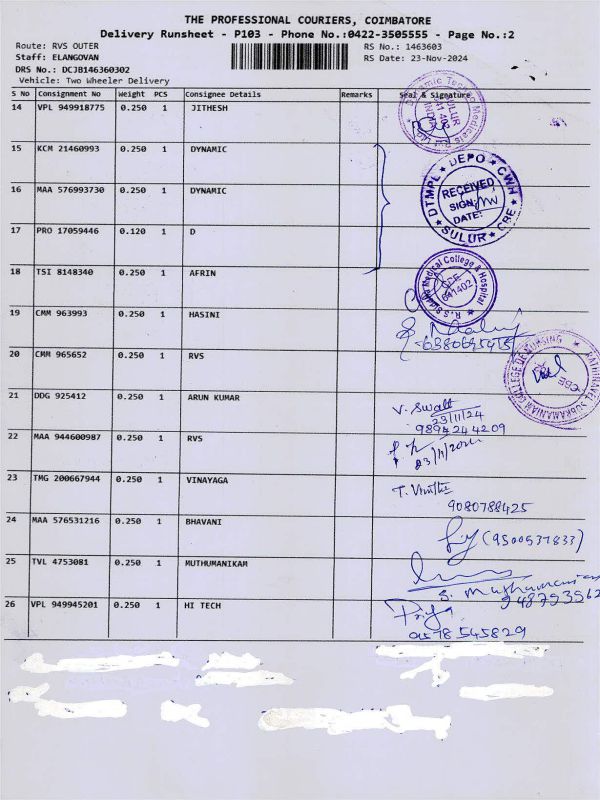 THE PROFESSIONAL COURIERS, COIMBATORE
Delivery Runsheet - P103 - Phone No.:0422-3505555 - Page No.:2
Route: RVS OUTER RS No.: 1463603
Staff: ELANGOVAN RS Date: 23-Nov-2024
DRS No.: DCJB146360302
Vehicle: Two Wheeler Delivery
S No Consignment No Weight PCS Consignee Details Remarks Seal & Signature
14 VPL 949918775 0.250 1 JITHESH
15 KCM 21460993 0.250 1 DYNAMIC
DTMPL * DEPO * CWH
RECEIVED
16 MAA 576993730 0.250 1 DYNAMIC
SIGN:
DATE:
* SULUR * CBE
17 PRO 17059446 0.120 1 D
18 TSI 8148340 0.250 1 AFRIN
Medical College & Hospital
CBE
641402
19 CMM 963993 0.250 1 HASINI
20 CMM 965652 0.250 1 RVS
RATHNAVEL SUBRAMANIAM COLLEGE OF NURSING
CBE
21 DDG 925412 0.250 1 ARUN KUMAR
V. Swati
23/11/24
9894244209
22 MAA 944600987 0.250 1 RVS
23 TMG 200667944 0.250 1 VINAYAGA
9080788425
24 MAA 576531216 0.250 1 BHAVANI
(9500537833)
25 TVL 4753081 0.250 1 MUTHUMANIKAM
26 VPL 949945201 0.250 1 HI TECH
Priya
9578545829